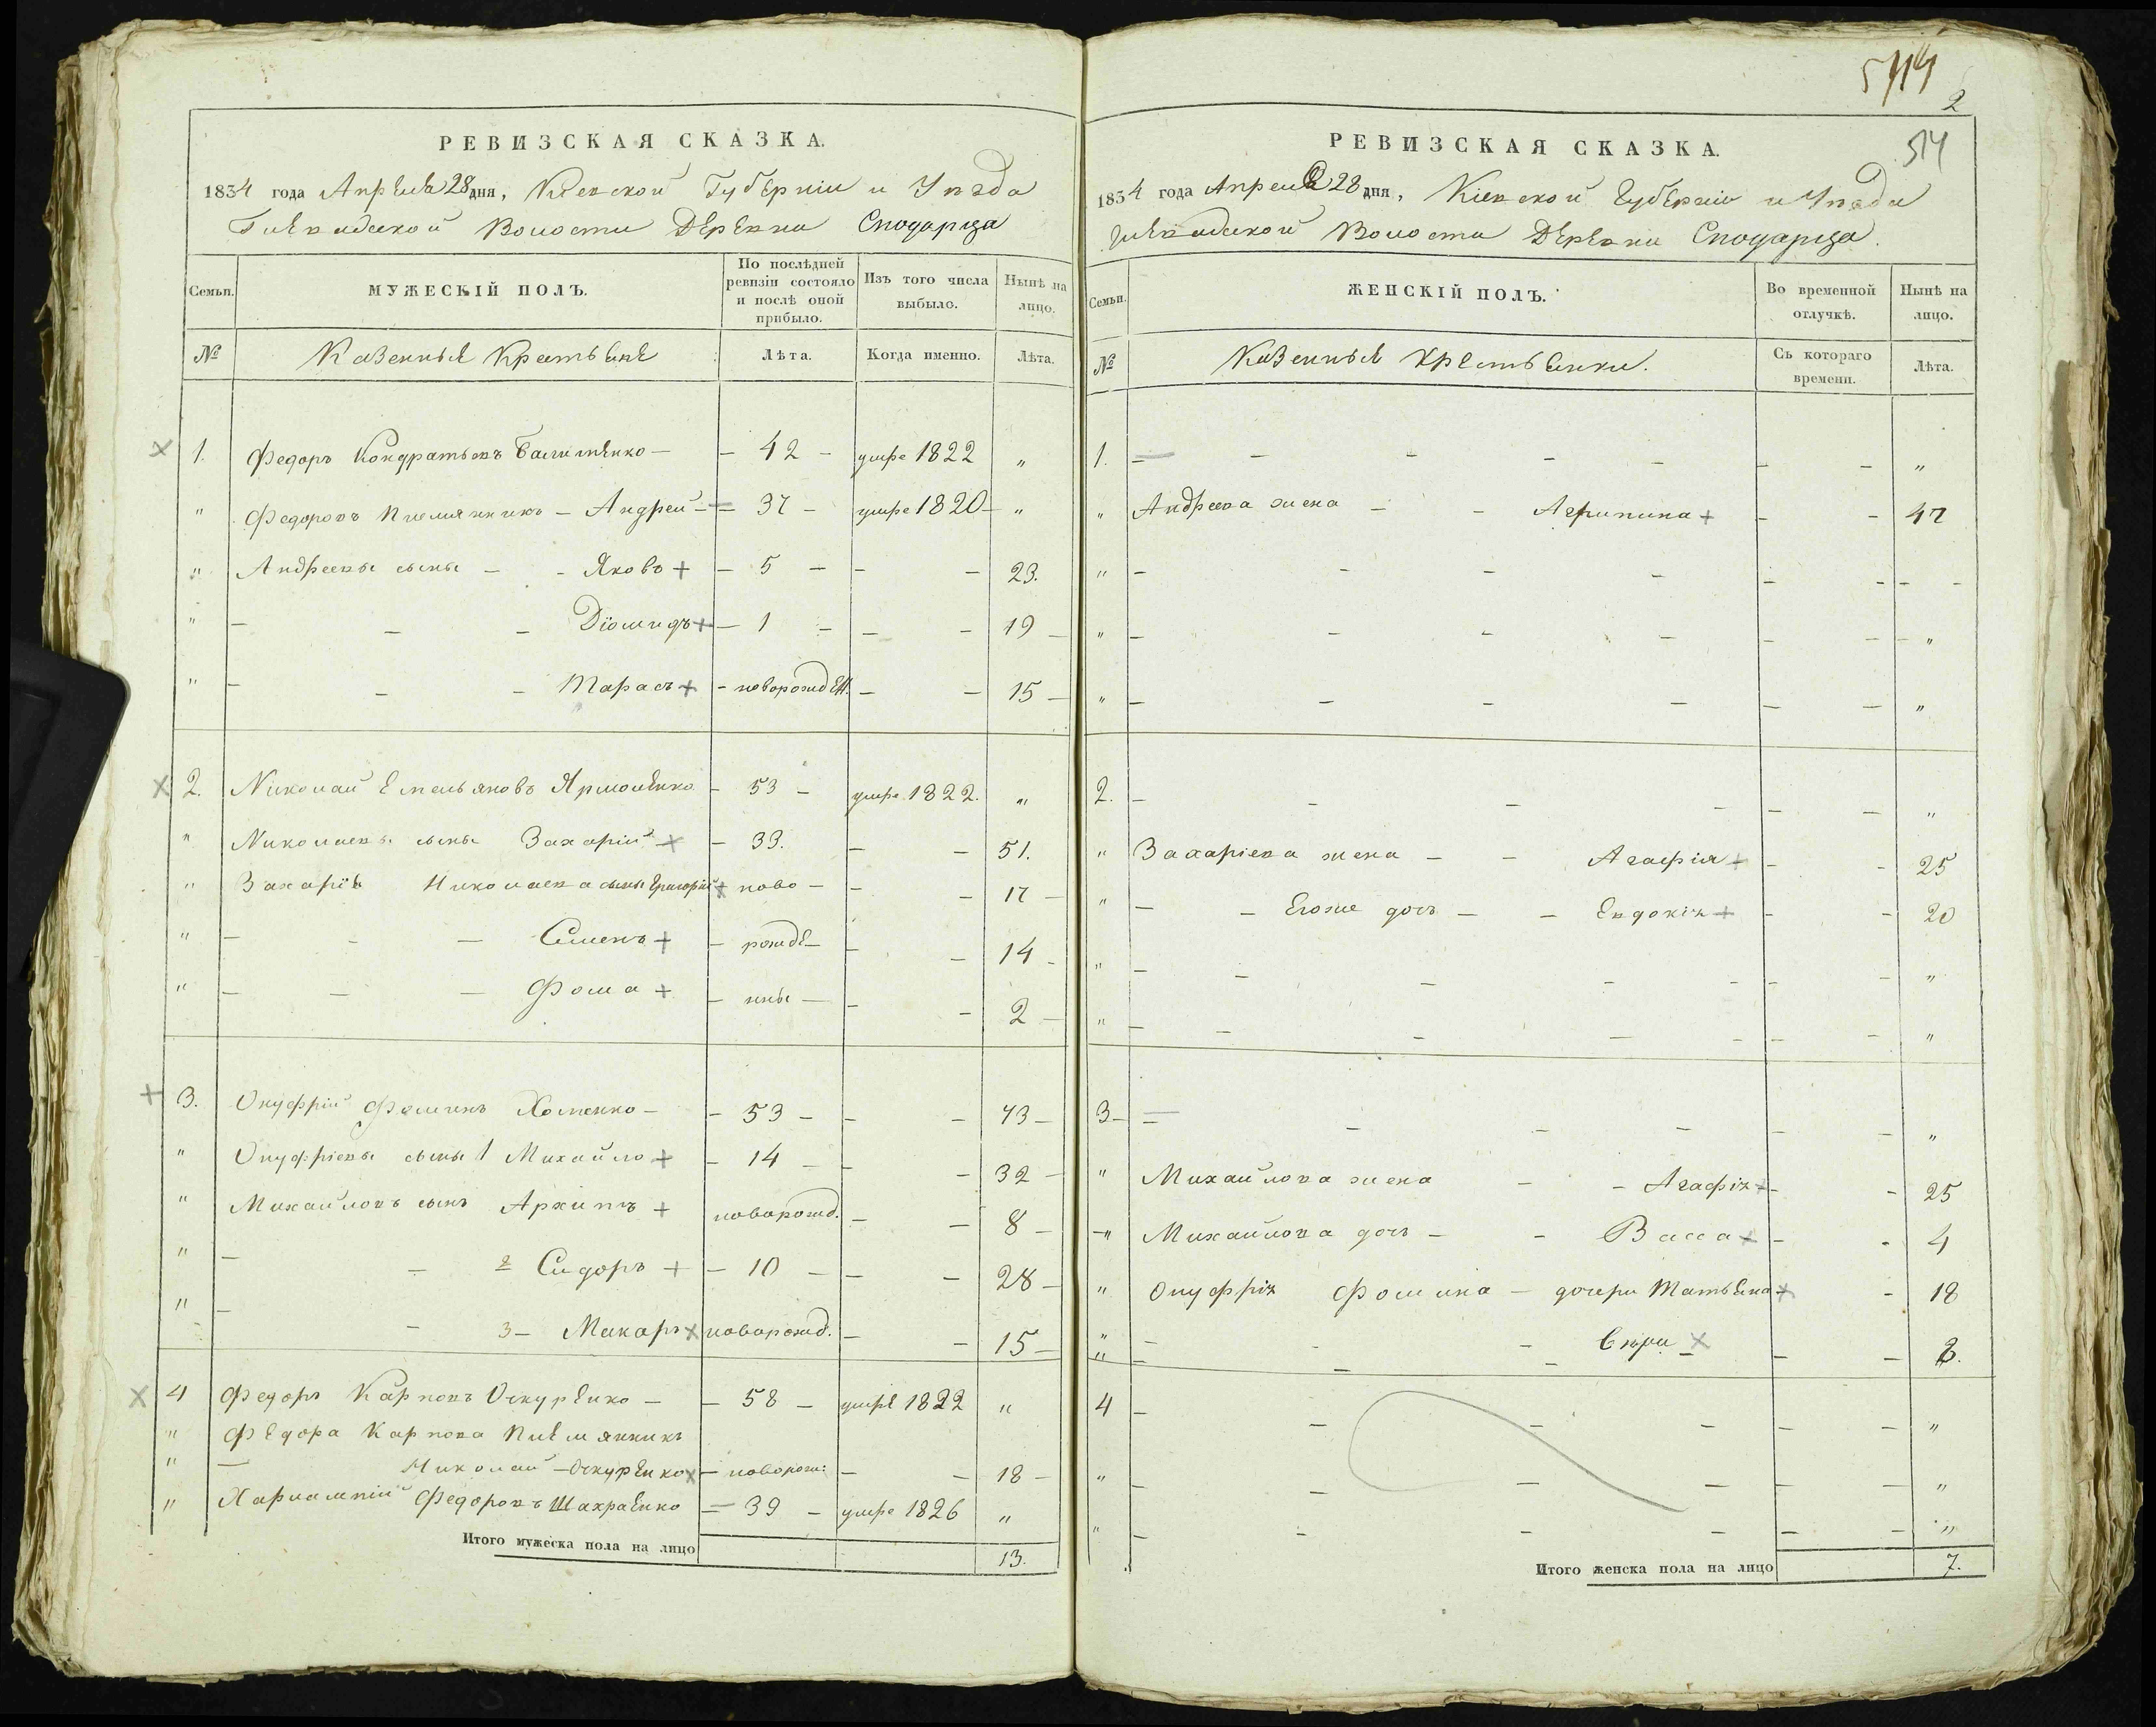 РЕВИЗСКАЯ СКАЗКА.
1834 года Апреля 28 дня, Кіевской Губерніи и Уезда
Волости Деревни Сподарца
Семьи.
МУЖЕСКІЙ ПОЛЪ.
По послѣдней ревизіи состояло и послѣ оной прибыло.
Изъ того числа выбыло.
Нынѣ на лицо.
№ Казенные Крестьяне Лѣта. Когда именно. Лѣта.
1. Федоръ Кондратьевъ — 42 — умре 1822 "
" Федоровъ племянникъ — Андрей — 37 — умре 1820 — "
" Андреевы сыны — — Яковъ + — 5 — — — 23.
" — — — Діомидъ + — 1 — — — 19 —
" — — — Тарасъ + — новорожден. — — 15 —
2. Николай Емельяновъ Ярмоленко — 53 — умре 1822. "
" Николаевы сыны Захарій + — 33. — — 51.
" Захарія Николаева сыны Григорій + ново — — — 17 —
" — — — Семенъ + — рожде — — — 14 —
" — — — Фома + — нны — — — 2 —
3. Онуфрій Фоминъ Хоменко — — 53 — — — 73 —
" Онуфріевы сыны 1 Михайло + — 14 — — — 32 —
" Михайловъ сынъ Архипъ + новорожд. — — 8 —
" — — 2 Сидоръ + — 10 — — — 28 —
" — — 3 — Макаръ × новорожд. — — 15 —
4 Федоръ Карповъ Оскуренко — — 58 — умре 1822 "
" Федора Карпова племянникъ
" — Николай — Оскуренко × — новорож: — — 18 —
" Харлампій Федоровъ — 39 — умре 1826 "
Итого мужеска пола на лицо 13.
514
2
514
РЕВИЗСКАЯ СКАЗКА.
1834 года Апреля 28 дня, Кіевской Губерніи и Уезда
Волости Деревни Сподарца.
Семьи.
ЖЕНСКІЙ ПОЛЪ.
Во временной отлучкѣ.
Нынѣ на лицо.
№ Казенные Крестьянки. Съ котораго времени. Лѣта.
1. — — — — — — — "
" Андреева жена — — Агрипина + — — 47
" — — — — — — — —
" — — — — — — — "
" — — — — — — "
2. — — — — — — "
" Захаріева жена — — Агафія + — — 25
" — — Егоже дочь — — Евдокія + — — 20
" — — — — — — — "
" — — — — — — — "
3 — — — — — — — "
" Михайлова жена — — Агафія + — — 25
" Михайлова дочь — — Васса + — — 4
" Онуфрія Фомина — дочери Татьяна + — 18
" — — — × — — 8.
4 — — — — — — "
" — — — — — — "
" — — — — — — "
Итого женска пола на лицо 7.